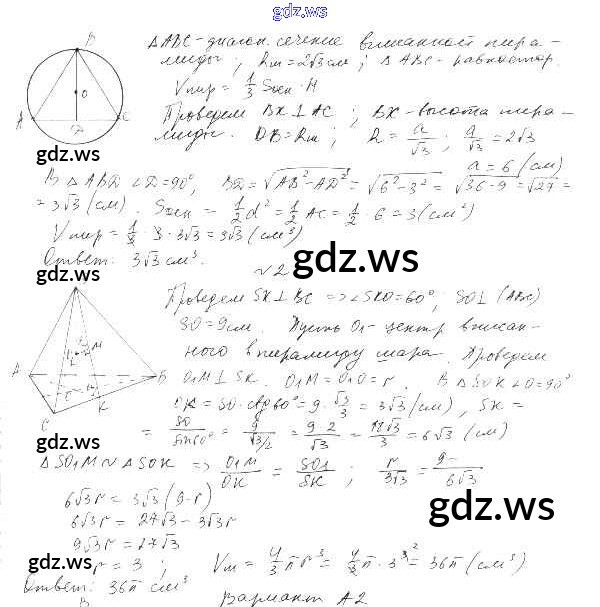 gdz.ws
ΔABC - диагон. сечение вписанной пира-
миды; Rш = 2√3 см; ΔABC - равностор.
Vпир = 1/3 Sосн · H
Проведем BD ⊥ AC; BD - высота пира-
миды. OB = Rш; R = a/√3; a/√3 = 2√3
a = 6 (см)
В ΔABD ∠D = 90°, BD = √(AB² - AD²) = √(6² - 3²) = √(36 - 9) = √27 =
= 3√3 (см). Sосн = 1/2 d² = 1/2 AC = 1/2 · 6 = 3 (см²)
Vпир = 1/3 · 3 · 3√3 = 3√3 (см³)
Ответ: 3√3 см³.
gdz.ws
gdz.ws
gdz.ws
№2
Проведем SK ⊥ BC => ∠SKO = 60°; SO ⊥ (ABC)
SO = 9 см. Пусть O₁ - центр вписан-
ного в пирамиду шара. Проведем
O₁M ⊥ SK. O₁M = O₁O = r. В ΔSOK ∠O = 90°
OK = SO · ctg 60° = 9 · √3/3 = 3√3 (см), SK =
= SO/sin 60° = 9/(√3/2) = 9·2/√3 = 18√3/3 = 6√3 (см)
ΔSO₁M ~ ΔSOK => O₁M/OK = SO₁/SK; r/3√3 = 9-r/6√3
6√3 r = 3√3 (9 - r)
6√3 r = 27√3 - 3√3 r
9√3 r = 27√3
r = 3; Vш = 4/3 π r³ = 4/3 π · 3³ = 36π (см³)
Ответ: 36π см³
gdz.ws
gdz.ws
Вариант А2
gdz.ws